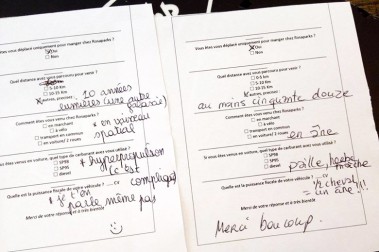 Vous êtes vous déplacé uniquement pour manger chez Rosaparks ?
Oui
Non
Quel distance avez vous parcouru pour venir ?
5-10 km
10-15 km
autres, préciser : 10 années
lumières (une autre
galaxie)
Comment êtes vous venu chez Rosaparks ?
en marchant
à vélo
transport en commun
en voiture/ 2 roues
+ en vaisseau
spatial
Si êtes venus en voiture, quel type de carburant avez vous utilisé ?
SP98
SP95
diesel
+ hyperpropulsion
(c'est
compliqué)
Quelle est la puissance fiscale de votre véhicule ? CV
+ je t'en
parle même pas
Merci de votre réponse et à très bientôt
Vous êtes vous déplacé uniquement pour manger chez Rosaparks ?
Oui
Non
Quel distance avez vous parcouru pour venir ?
5-10 km
10-15 km
autres, préciser :
au moins cinquante douze
Comment êtes vous venu chez Rosaparks ?
en marchant
à vélo
transport en commun
en voiture/ 2 roues
en âne
Si êtes venus en voiture, quel type de carburant avez vous utilisé ?
SP98
SP95
diesel
paille, herbe
Quelle est la puissance fiscale de votre véhicule ? CV
½ cheval
= un âne !!!
Merci de votre réponse et à très bientôt
Merci boucoup.